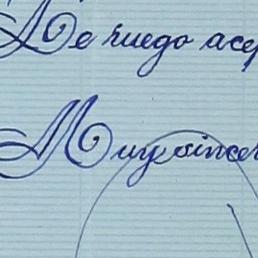 Le ruego acep
Muy sincer